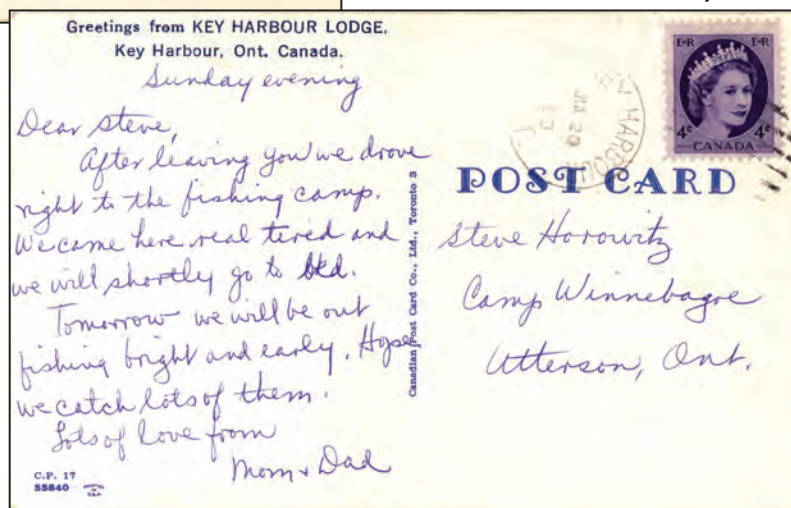 Greetings from KEY HARBOUR LODGE,
Key Harbour, Ont. Canada.
Sunday evening
Dear Steve,
After leaving you we drove
right to the fishing camp.
We came here real tered and
we will shortly go to bed.
Tomorrow we will be out
fishing bright and early. Hope
we catch lots of them.
Lots of love from
Mom + Dad
C.P. 17
55840
Canadian Post Card Co., Ltd., Toronto 3
HARBOUR
20
E R E R
4¢ 4¢
CANADA
POST CARD
Steve Horowitz
Camp Winnebagoe
Utterson, Ont.